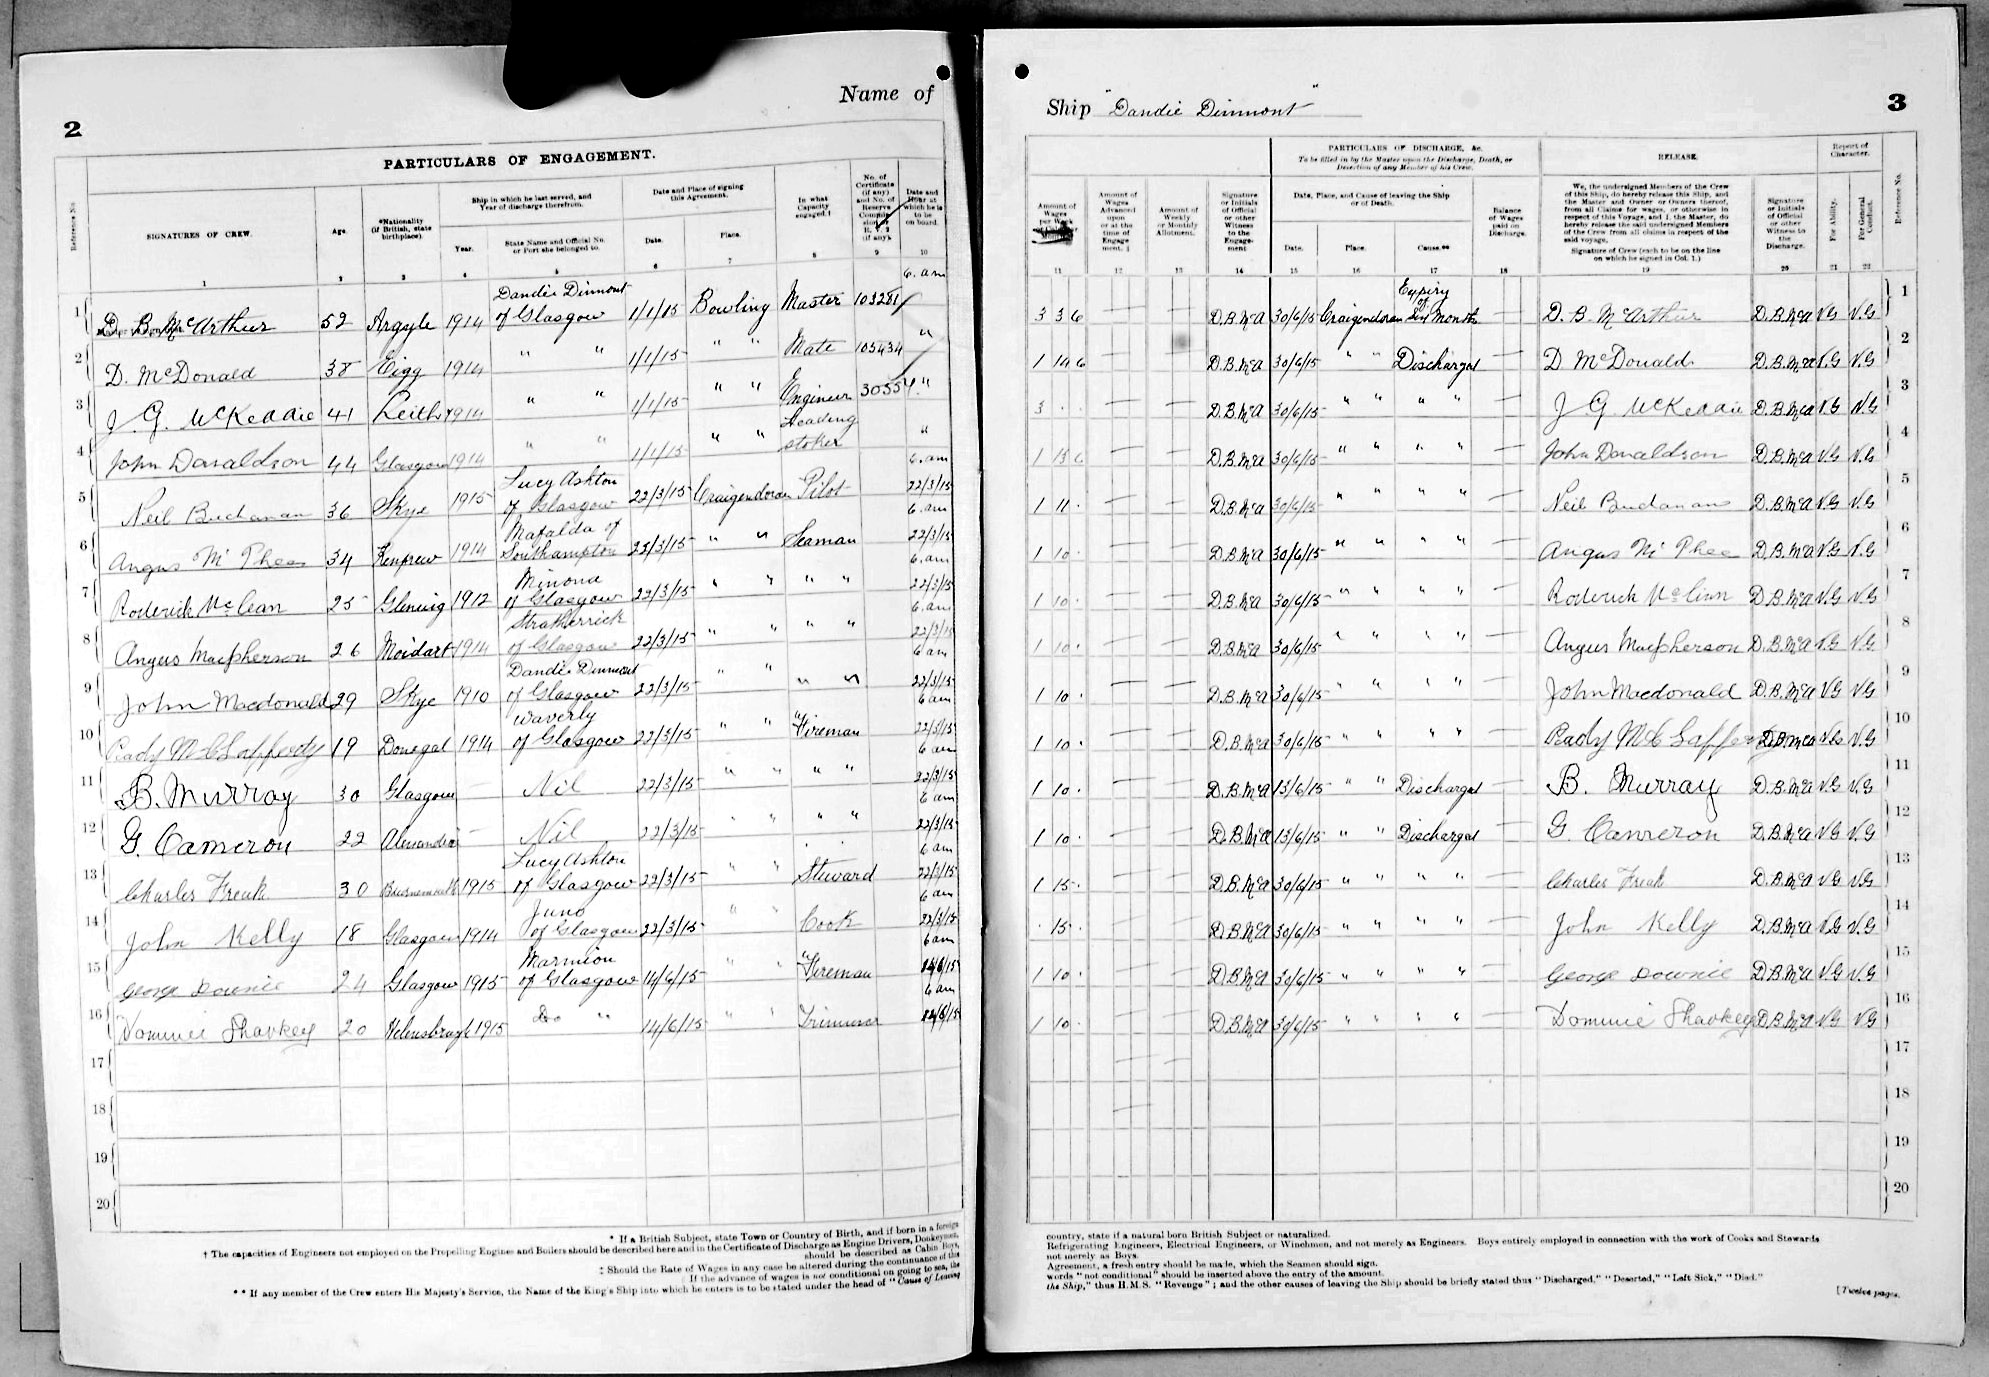 Name of
2
PARTICULARS OF ENGAGEMENT.
Reference No.
SIGNATURES OF CREW.
Age.
*Nationality (if British, state birthplace).
Ship in which he last served, and Year of discharge therefrom.
Year.
State Name and Official No. or Port she belonged to.
Date and Place of signing this Agreement.
Date.
Place.
In what Capacity engaged.†
No. of Certificate (if any) and No. of Reserve
Date and Hour at which he is to be on board.
1 2 3 4 5 6 7 8 9 10
1 D. B. McArthur 52 Argyle 1914 Dandie Dinmont of Glasgow 1/1/15 Bowling Master 103281 6. am
2 D. McDonald 38 Eigg 1914 " " 1/1/15 " " Mate 103434 "
3 J. G. McKeddie 41 Leith 1914 " " 1/1/15 " " Engineer 30554 "
4 John Donaldson 44 Glasgow 1914 " " 1/1/15 " " Leading stoker "
5 Neil Buchanan 36 Skye 1915 Lucy Ashton of Glasgow 22/3/15 Craigendoran Pilot 6. am 22/3/15
6 Angus McPhee 34 Renfrew 1914 Mafalda of Southampton 22/3/15 " " Seaman 6. am 22/3/15
7 Roderick McLean 25 Glenuig 1912 Minona of Glasgow 22/3/15 " " " " 6. am 22/3/15
8 Angus Macpherson 26 Moidart 1914 Stratherrick of Glasgow 22/3/15 " " " " 6. am 22/3/15
9 John Macdonald 29 Skye 1910 Dandie Dinmont of Glasgow 22/3/15 " " " " 6 am 22/3/15
10 19 Donegal 1914 Waverly of Glasgow 22/3/15 " " Fireman 6 am 22/3/15
11 B. Murray 30 Glasgow — Nil 22/3/15 " " " " 6 am 22/3/15
12 G. Cameron 22 Alexandria — Nil 22/3/15 " " " " 6 am 22/3/15
13 Charles Freak 30 Bournemouth 1915 Lucy Ashton of Glasgow 22/3/15 " " Steward 6 am 22/3/15
14 John Kelly 18 Glasgow 1914 Juno of Glasgow 22/3/15 " " Cook 6 am 22/3/15
15 George Downie 24 Glasgow 1915 Marmion of Glasgow 14/6/15 " " Fireman 6 am 14/6/15
16 Dominic Sharkey 20 Helensburgh 1915 Do " 14/6/15 " " Trimmer 6 am 14/6/15
17
18
19
20
* If a British Subject, state Town or Country of Birth, and if born in a foreign
† The capacities of Engineers not employed on the Propelling Engines and Boilers should be described here and in the Certificate of Discharge as Engine Drivers, Donkeymen,
should be described as Cabin Boys,
‡ Should the Rate of Wages in any case be altered during the continuance of the
If the advance of wages is not conditional on going to sea, the
** If any member of the Crew enters His Majesty's Service, the Name of the King's Ship into which he enters is to be stated under the head of "Cause of Leaving
Ship "Dandie Dinmont"
3
Amount of Wages per Week
Amount of Wages Advanced upon or at the time of Engagement. ‡
Amount of Weekly or Monthly Allotment.
Signature or Initials of Official or other Witness to the Engagement
PARTICULARS OF DISCHARGE, &c.
To be filled in by the Master upon the Discharge, Death, or Desertion of any Member of his Crew.
Date, Place, and Cause of leaving the Ship or of Death.
Date.
Place.
Cause.**
Balance of Wages paid on Discharge.
RELEASE.
We, the undersigned Members of the Crew of this Ship, do hereby release this Ship, and the Master and Owner or Owners thereof, from all Claims for wages, or otherwise in respect of this Voyage, and I, the Master, do hereby release the said undersigned Members of the Crew from all claims in respect of the said voyage,
Signature of Crew (each to be on the line on which he signed in Col. 1.)
Signature or Initials of Official or other Witness to the Discharge.
Report of Character.
For Ability.
For General Conduct.
Reference No.
11 12 13 14 15 16 17 18 19 20 21 22
3 3 6 — — D.B.McA 30/6/15 Craigendoran Expiry of Six Months — D. B. McArthur D.B.McA V.G V.G 1
1 14 6 — — D.B.McA 30/6/15 " " Discharged — D McDonald D.B.McA V.G V.G 2
3 . . — — D.B.McA 30/6/15 " " " " — J G McKeddie D.B.McA V.G V.G 3
1 15 6 — — D.B.McA 30/6/15 " " " " — John Donaldson D.B.McA V.G V.G 4
1 11 . — — D.B.McA 30/6/15 " " " " — Neil Buchanan D.B.McA V.G V.G 5
1 10 . — — D.B.McA 30/6/15 " " " " — Angus McPhee D.B.McA V.G V.G 6
1 10 . — — D.B.McA 30/6/15 " " " " — Roderick McLean D.B.McA V.G V.G 7
1 10 . — — D.B.McA 30/6/15 " " " " — Angus Macpherson D.B.McA V.G V.G 8
1 10 . — — D.B.McA 30/6/15 " " " " — John Macdonald D.B.McA V.G V.G 9
1 10 . — — D.B.McA 30/6/15 " " " " — D.B.McA V.G V.G 10
1 10 . — — D.B.McA 13/6/15 " " Discharged — B. Murray D.B.McA V.G V.G 11
1 10 . — — D.B.McA 13/6/15 " " Discharged — G. Cameron D.B.McA V.G V.G 12
1 15 . — — D.B.McA 30/6/15 " " " " — Charles Freak D.B.McA V.G V.G 13
. 15 . — — D.B.McA 30/6/15 " " " " — John Kelly D.B.McA V.G V.G 14
1 10 . — — D.B.McA 30/6/15 " " " " — George Downie D.B.McA V.G V.G 15
1 10 . — — D.B.McA 30/6/15 " " " " — Dominic Sharkey D.B.McA V.G V.G 16
17
18
19
20
country, state if a natural born British Subject or naturalized.
Refrigerating Engineers, Electrical Engineers, or Winchmen, and not merely as Engineers. Boys entirely employed in connection with the work of Cooks and Stewards
not merely as Boys.
Agreement, a fresh entry should be made, which the Seamen should sign.
words "not conditional" should be inserted above the entry of the amount.
the Ship," thus H.M.S. "Revenge"; and the other causes of leaving the Ship should be briefly stated thus "Discharged," "Deserted," "Left Sick," "Died."
[Twelve pages.